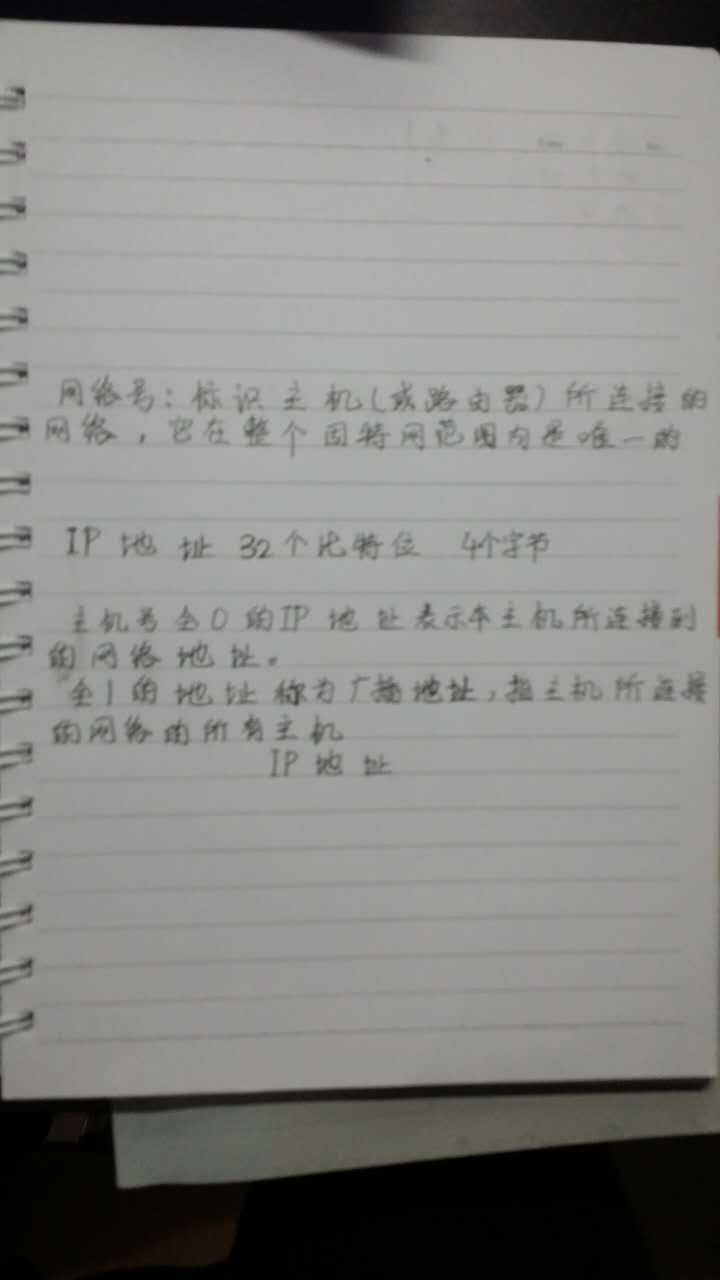 网络号：标识主机（或路由器）所连接的
网络，它在整个因特网范围内是唯一的
IP 地址 32个比特位 4个字节
主机号全0的IP 地址表示本主机所连接到
的网络地址。
全1的地址称为广播地址，指主机所连接
的网络的所有主机
IP 地址